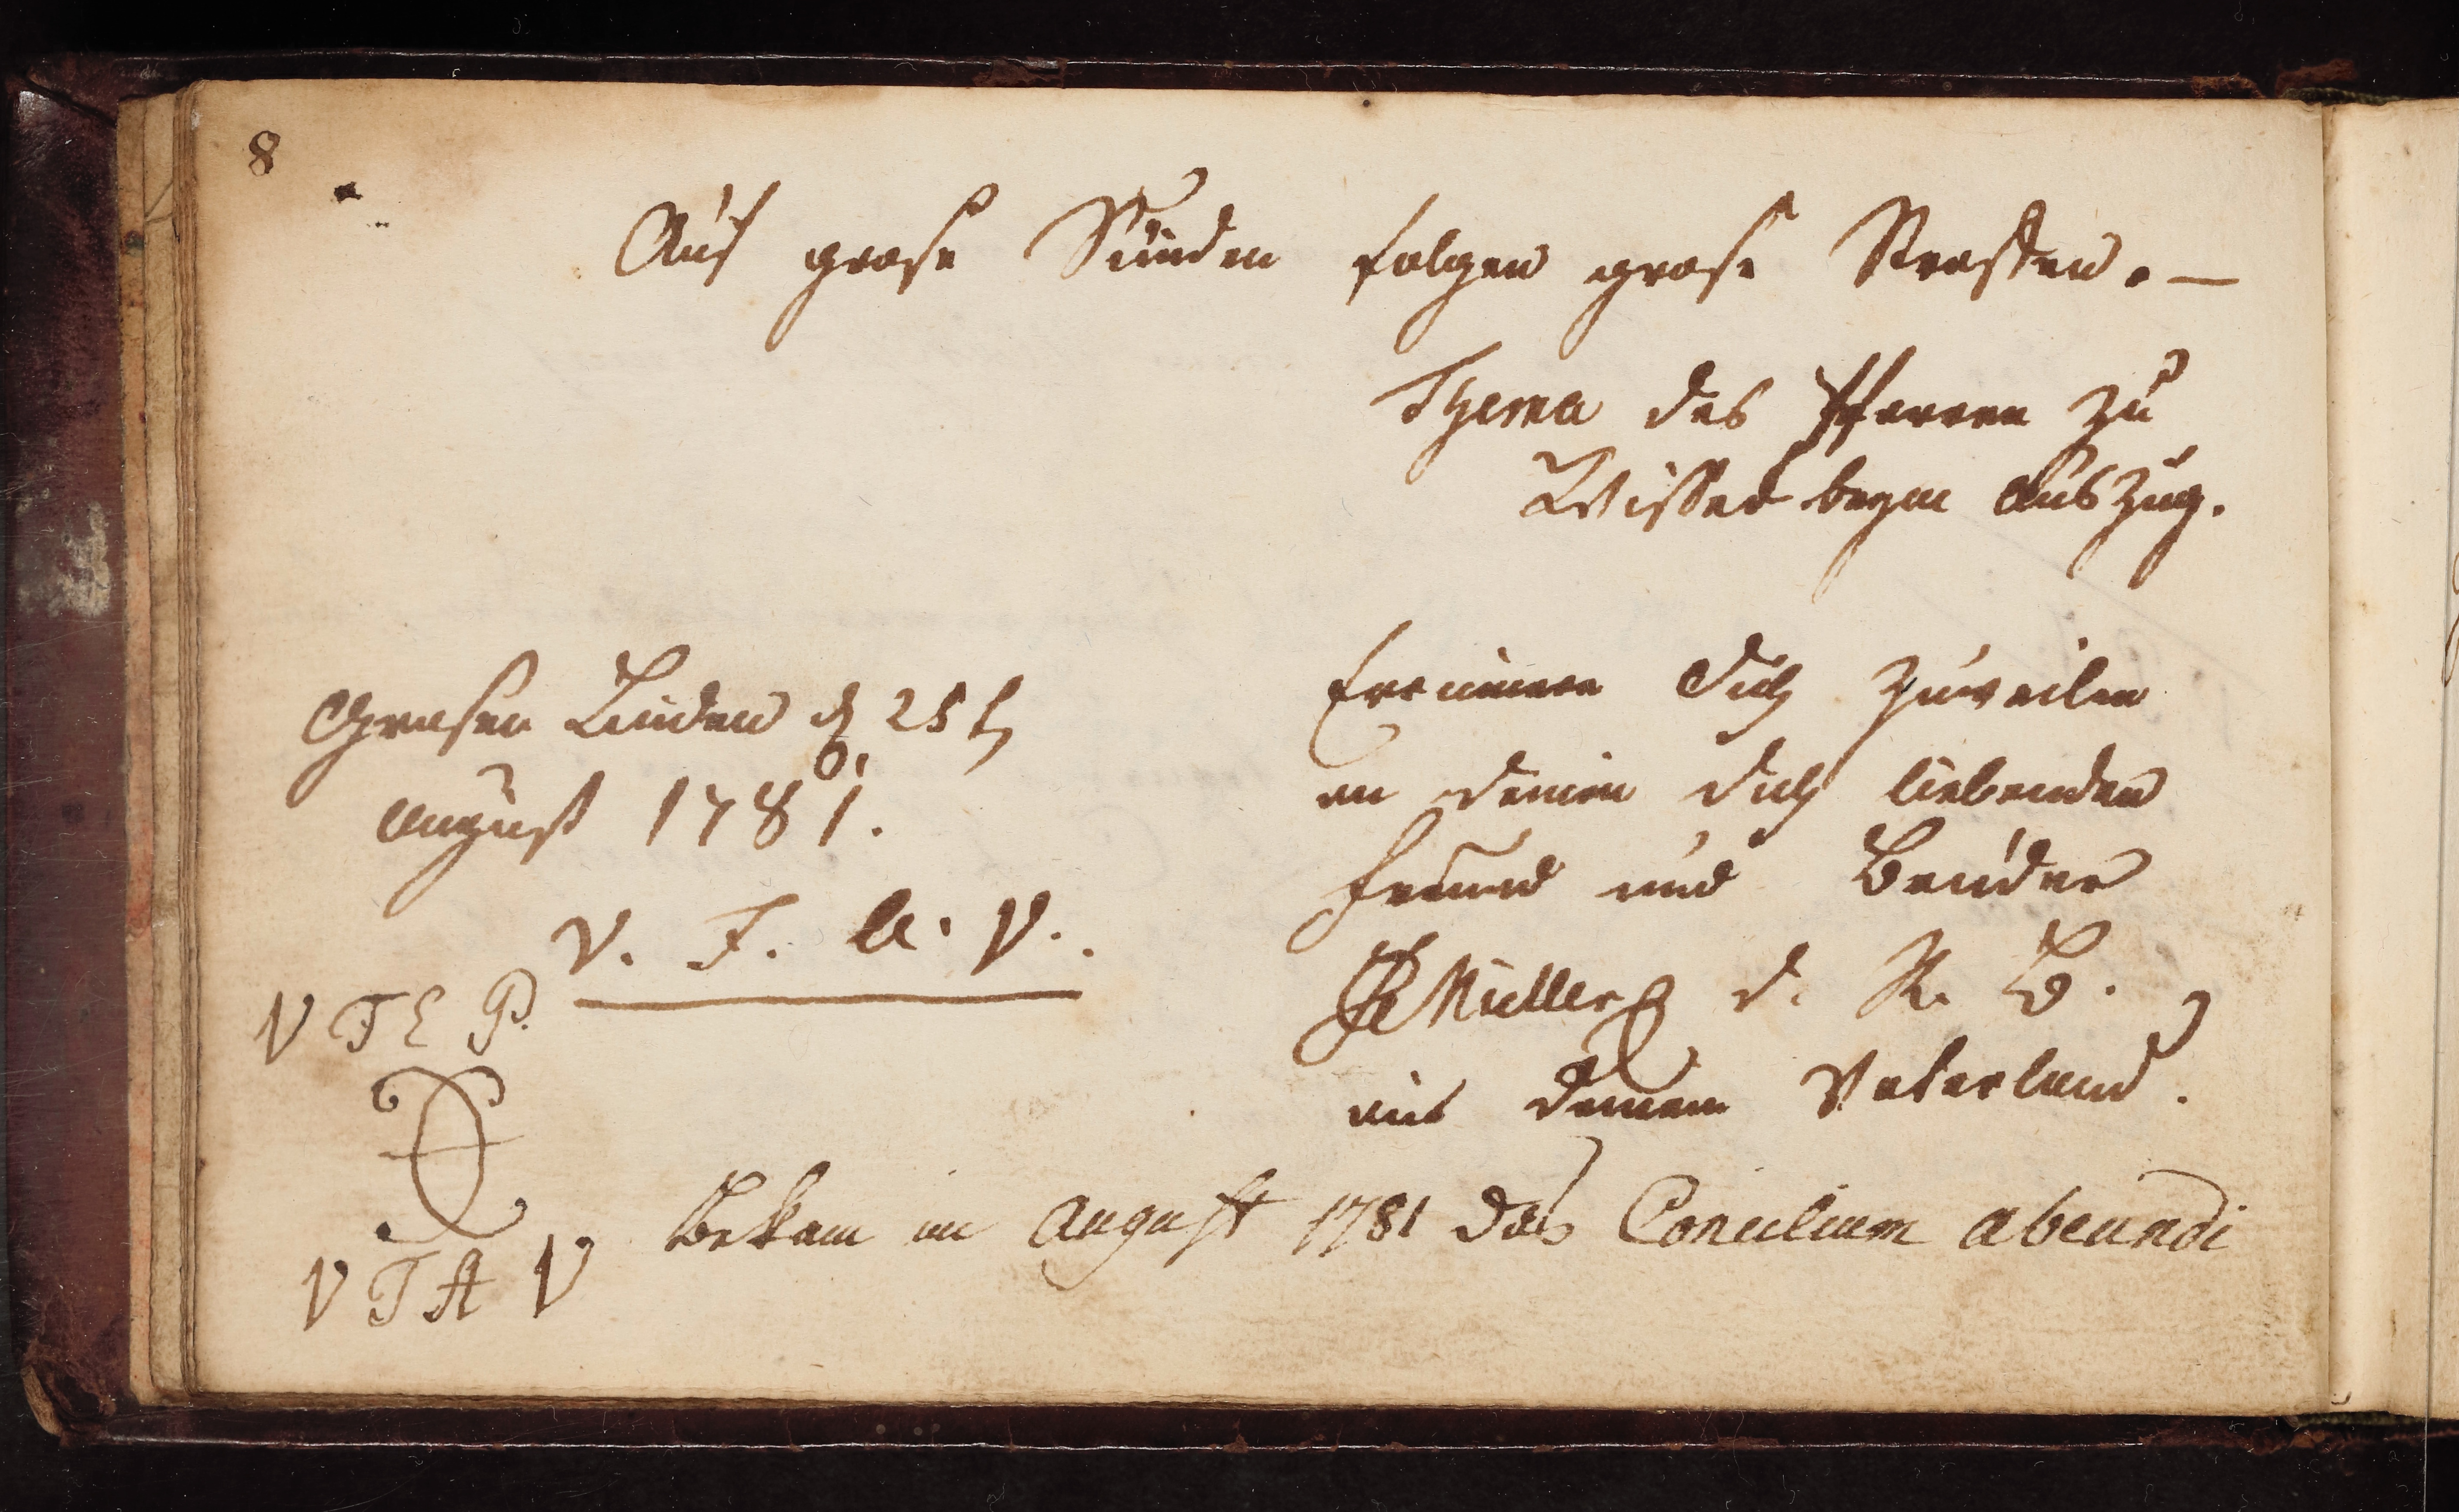 8
Auf grose Sünden folgen grose Straffen. —
Thema des Pfarren zu
Wisser beym Auszug.
Grosen Linden d 25 t
August 1781.
V. T. A. V.
V T E P.
V T A V
Erinnere Dich zuweilen
an deinen dich liebenden
Freund und Bruder
Müller d. R. B.
aus deinem Vaterland.
Bekam im August 1781 das Consilium abeundi